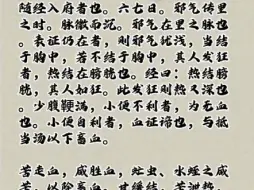 随经入府者也。六七日。邪气传里
之时。脉微而沉。邪气在里之脉也
。表证仍在者，则邪气犹浅，当结
于胸中，若不结于胸中，其人发狂
者，热结在膀胱也。经曰：热结膀
胱，其人如狂。此发狂则热又深也
。少腹鞕满，小便不利者，为无血
也。小便自利者，血证谛也，与抵
当汤以下畜血。
苦走血，咸胜血，虻虫、水蛭之咸